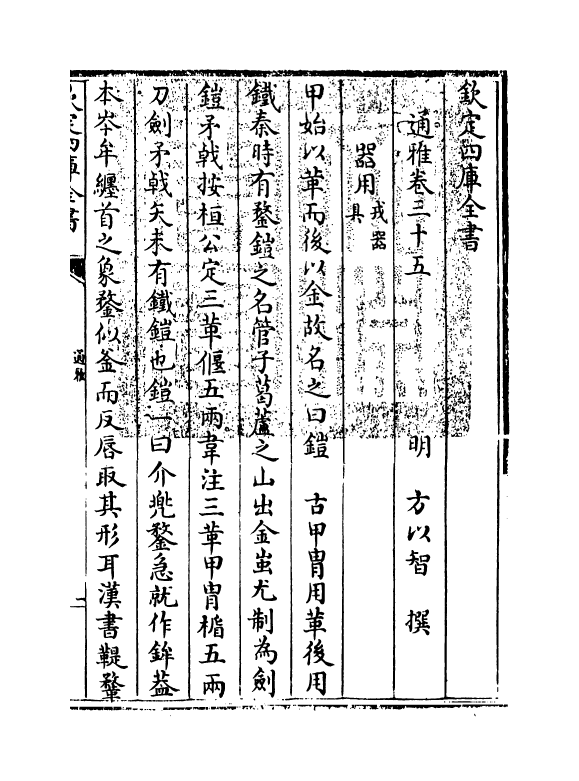 欽定四庫全書
通雅卷三十五
明 方以智 撰
器用 戎器具
甲始以革而後以金故名之曰鎧 古甲胄用革後用
鐵秦時有鍪鎧之名管子葛蘆之山出金蚩尤制為劍
鎧矛戟按桓公定三革偃五兩韋注三革甲胄楯五兩
刀劍矛戟矢未有鐵鎧也鎧一曰介兠鍪急就作鉾葢
本岑牟纏首之象鍪似釜而反唇取其形耳漢書鞮鞪
欽定四庫全書
通雅